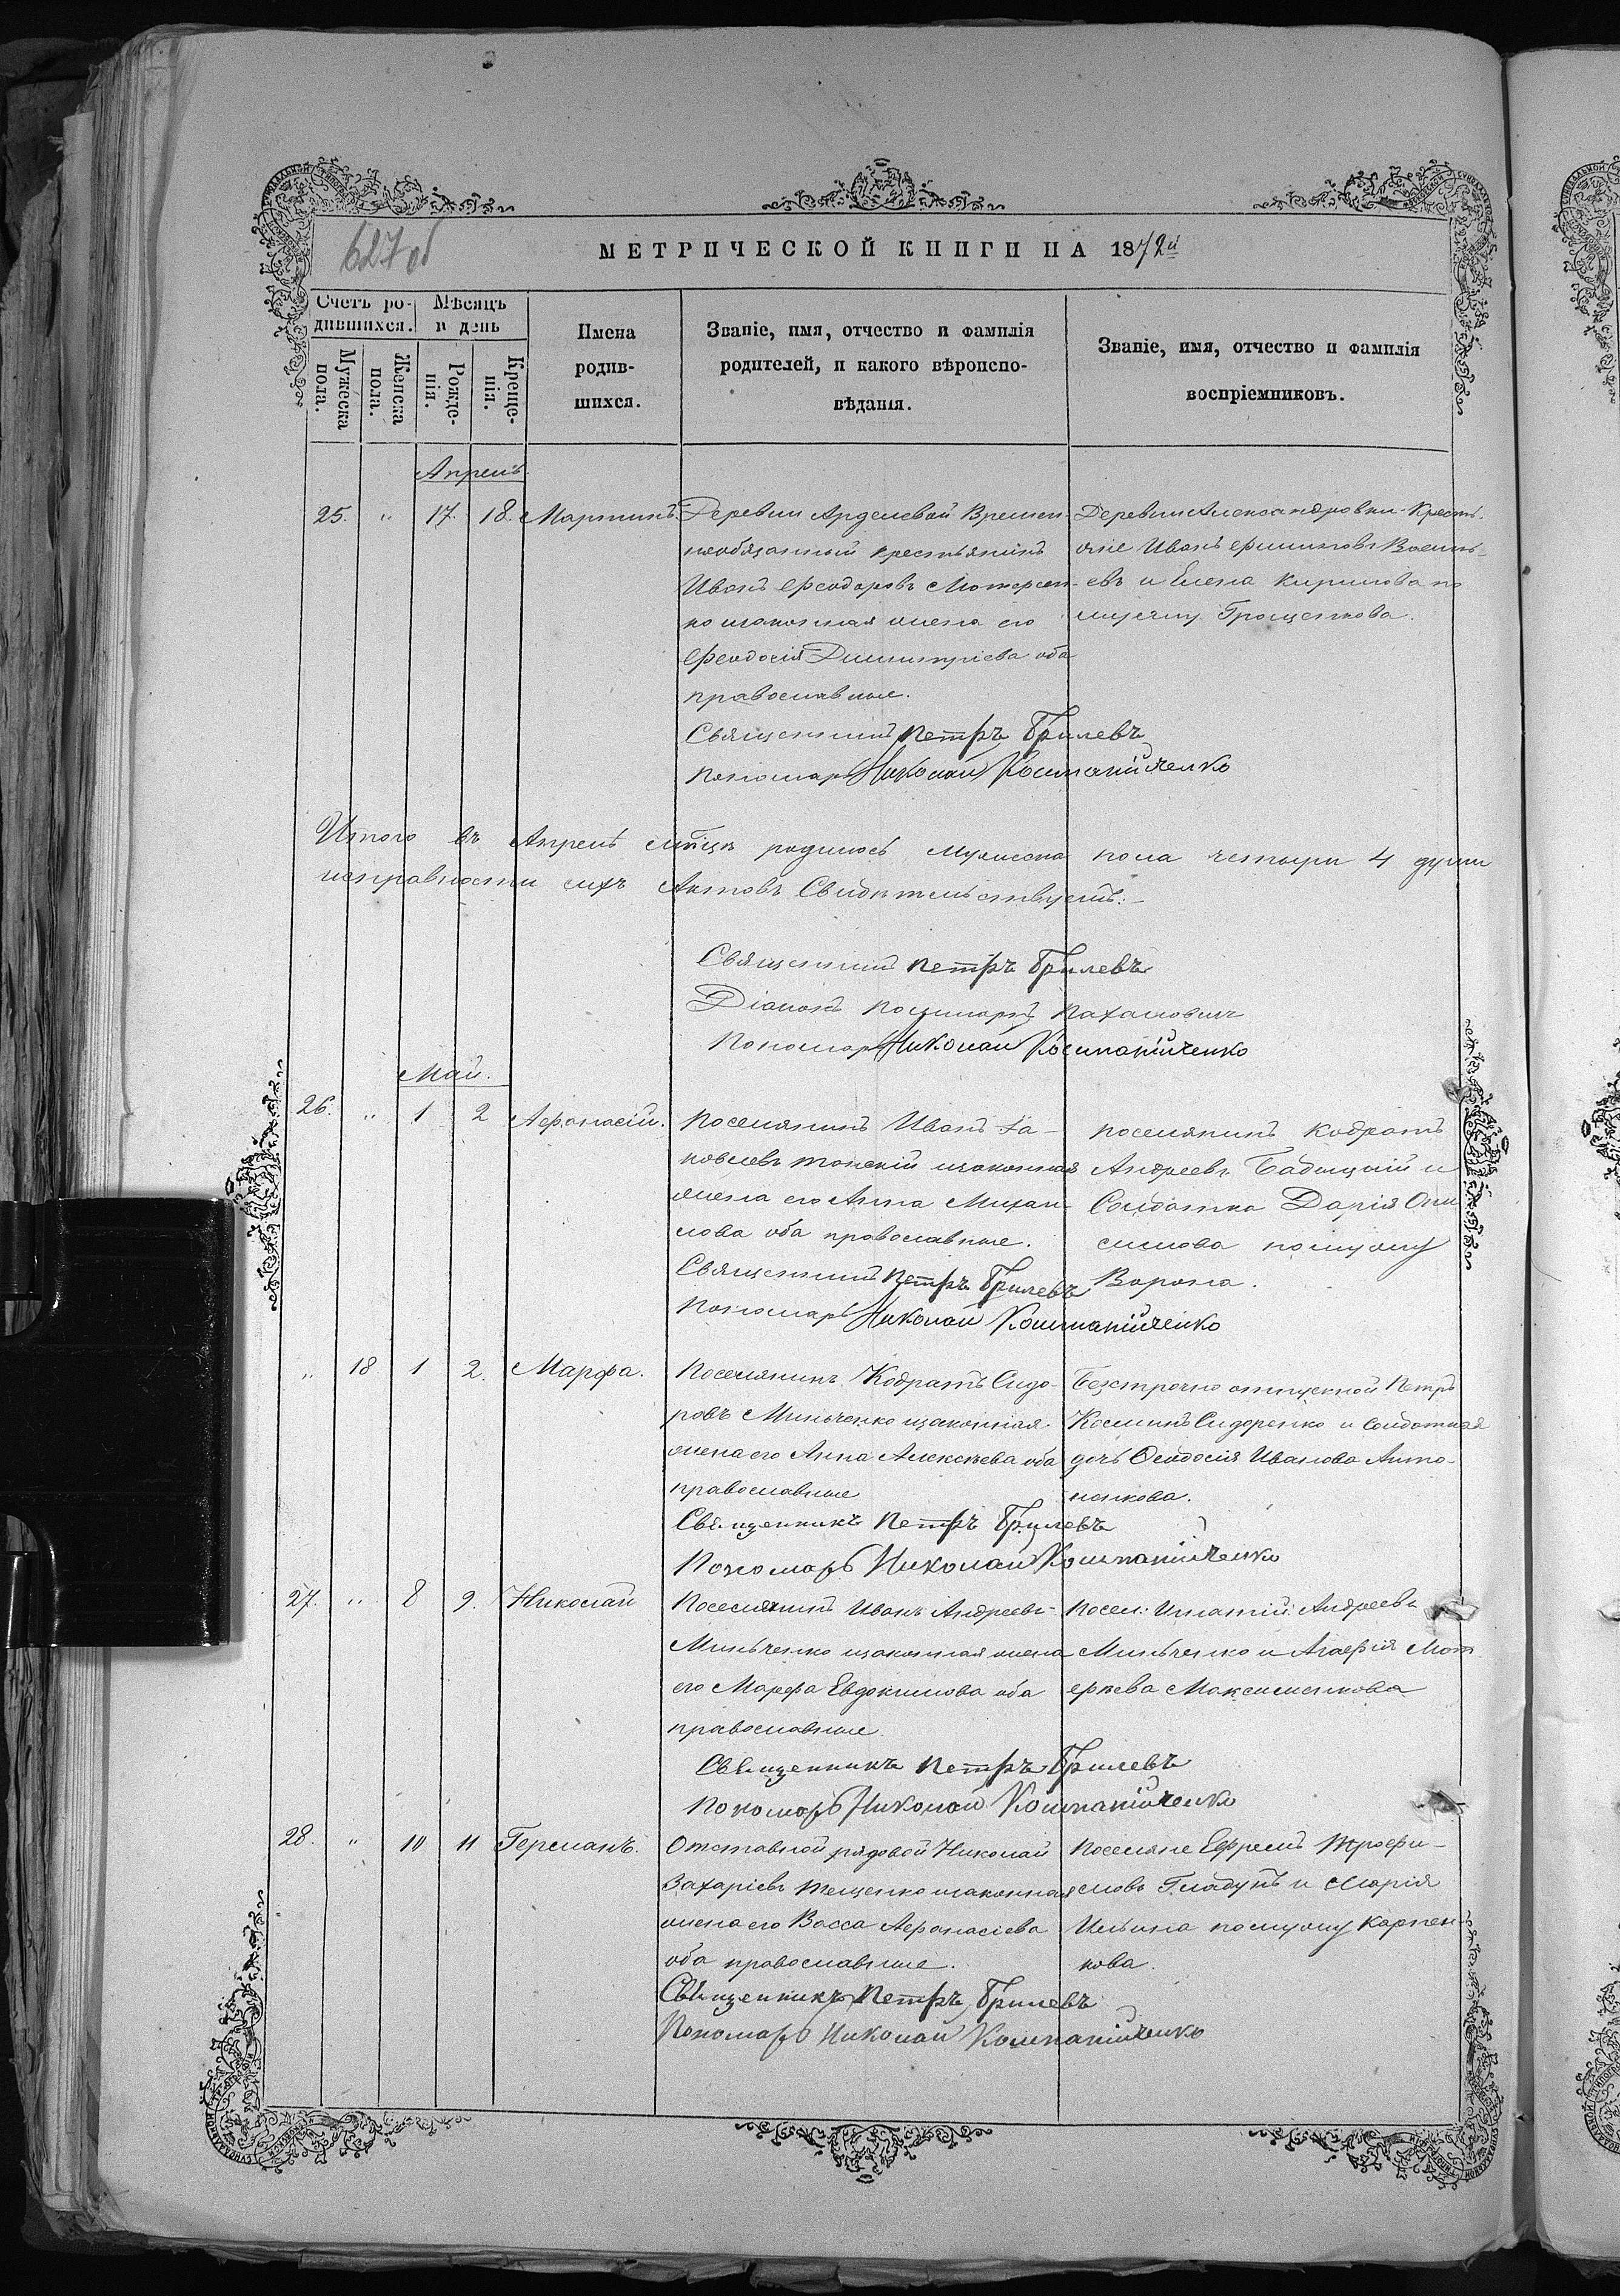 627 об
МЕТРИЧЕСКОЙ КНИГИ НА 1872й
Счетъ ро-
дившихся.
Мѣсяцъ
и день
Мужеска
пола.
Женска
пола.
Рожде-
нія.
Креще-
нія.
Имена
родив-
шихся.
Званіе, имя, отчество и фамилія
родителей, и какого вѣроиспо-
вѣданія.
Званіе, имя, отчество и фамилія
воспріемниковъ.
Апрель
25. " 17. 18. Мартинъ.
Деревни Времен
необязанный крестьянинъ
Иванъ Феодоровъ
ко изаконная жена его
Феодосія Димитріева оба
православные.
Священникъ Петръ Брилевъ
Пономарь Николай Компанійченко
Деревни Александровки Кресть-
яне Иванъ Филиповъ
евъ и Елена Кирилова по
мужу Грощенкова.
Итого въ Апрелѣ мѣсяцѣ родилось Мужеска пола четыри 4 души
исправности сихъ Актовъ Свидѣтельствуетъ:-
Священникъ Петръ Брилевъ
Діаконъ Пахаловичъ
Пономарь Николай Компанійченко
Май.
26. " 1 2 Афанасій.
Поселянинъ Иванъ Іа-
ковлевъ изаконная
жена его Анна Михаи-
лова оба православные.
Священникъ Петръ Брилевъ
Пономарь Николай Компанійченко
поселянинъ Кодратъ
Андреевъ и
Солдатка Дарія Они
симова помужу
Ворона.
" 18 1 2. Марфа.
Поселянинъ Кодратъ Сидо-
ровъ Миньченко изаконная
жена его Анна Алексѣева оба
православные
Священникъ Петръ Брилевъ
Пономарь Николай Компанійченко
Безсрочно отпускной Петръ
Косминъ Сидоренко и солдатская
дочь Феодосія Иванова Анто-
ненкова.
27. " 8 9. Николай
Поселянинъ Иванъ Андреевъ
Миньченко изаконная жена
его Марфа Евдокимова оба
православные
Священникъ Петръ Брилевъ
Пономарь Николай Компанійченко
Посел: Игнатій Андреевъ
Миньченко и Агафія Мат
ѳѣева Максименкова
28. " 10 11 Германъ.
Отставной рядовой Николай
Захаріевъ Тещенко изаконная
жена его Васса Афанасіева
оба православные.
Священникъ Петръ Брилевъ
Пономарь Николай Компанійченко
Поселяне Ефремъ Трофи-
мовъ Гладунъ и Марія
Ильина помужу Карпен-
кова.